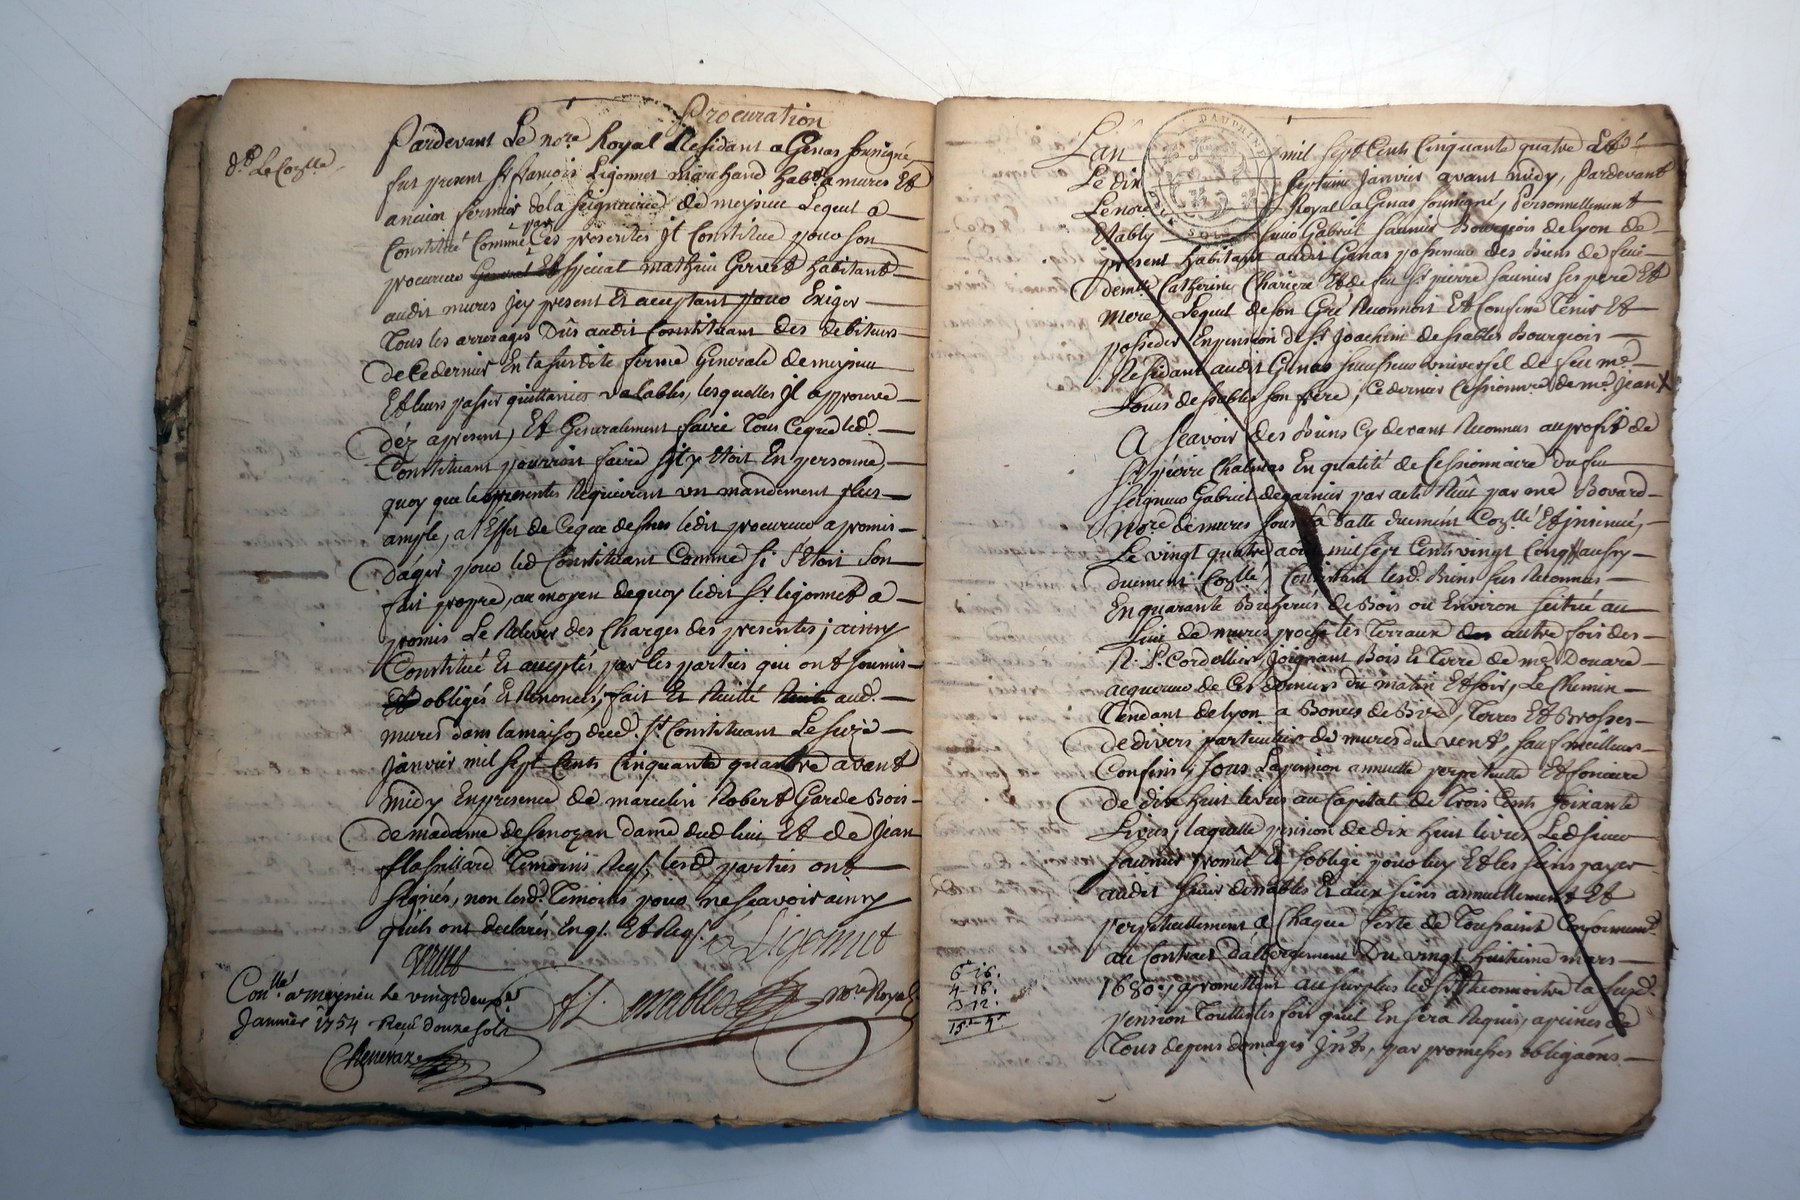 Procuration
dd. Le Coz.lle
Pardevant Le no.re Royal Residant a Genas soussigné,
fut present Sr. françois Ligonnet marchand habt. a mures Et
ancien fermier de la seigneurie de meyzieu Lequel a
Constitué Comme par Ces presentes jl Constitue pour son
procureur general Et special mathieu Gervet habitant
audit mures jcy present Et acceptant pour Exiger
Tous les arrerages Dûs audit Constituant des debiteurs
de Ce dernier En la susdite ferme Generale de meyzieu
Et leurs passer quittances valables, lesquelles jl approuve
déz apresent, Et Generalement faire Tous Ceque led.
Constituant pourroit faire s'jl y Etoit En personne,
quoy que le presentes Requierent un mandement plus
ample, a l'Effet de Ceque dessus ledit procureur a promis
d'agir pour led Constituant Comme si S'Etoit Son
fait propre, au moyen dequoy ledit Sr. ligonnet a
promis Le Relever des Charges des presentes; ainsy
Constitué Et acceptés par les parties qui ont soumis
Et obligés Et Renoncés; fait Et Recité aud.
mures dans la maison dud. Sr. Constituant Le seize
janvier mil sept Cents Cinquante quattre avant
midy En presence de marcelin Robert Garde Bois
de madame de Senozan dame dud lieu Et de Jean
Temoins Req.s, lesd. parties ont
signés, non lesd. Temoins pour ne sçavoir ainsy
qu'ils ont declarés Enq.s Et Req.s
Ligonnet
Con.llé a meyzieu Le vingt deux
Janvier 1754 Reçu douze sols
Dessables no.re Royal
DAUPHINE
L'an mil sept Cents Cinquante quatre Et
Le dix septieme janvier avant midy, Pardevant
Le no.re Royal a Genas soussigné, Personnellement
Etably sieur Gabriel saunier Bourgeois de lyon de
present habitant audit Genas possesseur des Biens de feüe
dem.lle Catherine Chariere Et de feu Sr. pierre saunier ses pere Et
mere, Lequel de son Gré Reconnoit Et Confesse Tenir Et
posseder En pension de Sr. Joachim dessables Bourgeois
Residant audit Genas successeur universel de feu me.
Louis dessables son frere, Ce dernier Cessionnre de me. jean X
A sçavoir des Biens Cy devant Reconnus au profit de
Sr. pierre Chalmas En qualité de Cessionnaire du feu
seigneur Gabriel de garnier par acte Reçu par me Bovard
no.re de mures sous sa datte duement Coz.llé Et jnsinué,
Le vingt quatre aout mil sept Cents vingt Cinq aussy
duement Coz.llé, Consistant lesd. Biens sus Reconnus
En quarante Bicherées de Bois ou Environ scitué au
Lieu de mures proche les Terraux autre fois des
R. P. Cordelliers, Joignant Bois Et Terre de me Douare
acquereur de Ces derniers du matin Et soir, Le Chemin
Tendant de lyon a de Terres Et Brosses
de divers particuliers de mures du vent, sauf meilleurs
Confins; sous La pension annuelle perpetuelle Et fonciere
de dix huit livres au Capital de Trois Cents soixante
Livres, laquelle pension de dix huit livres Led sieur
saunier promet Et s'oblige pour luy Et les siens payer
audit sieur dessables Et aux siens annuellement Et
perpetuellement a Chaque feste de Toussaint Conformem.t
au Contrat d'albergement Du vingt huitieme mars
1680; promettant au surplus led Sr. Reconnoitre la susd.
pension Touttes les fois qu'il En sera Requis, a peines de
Tous depens domages jnts., par promesses obligaôns
6 16.
4 16.
3 12.
15 4